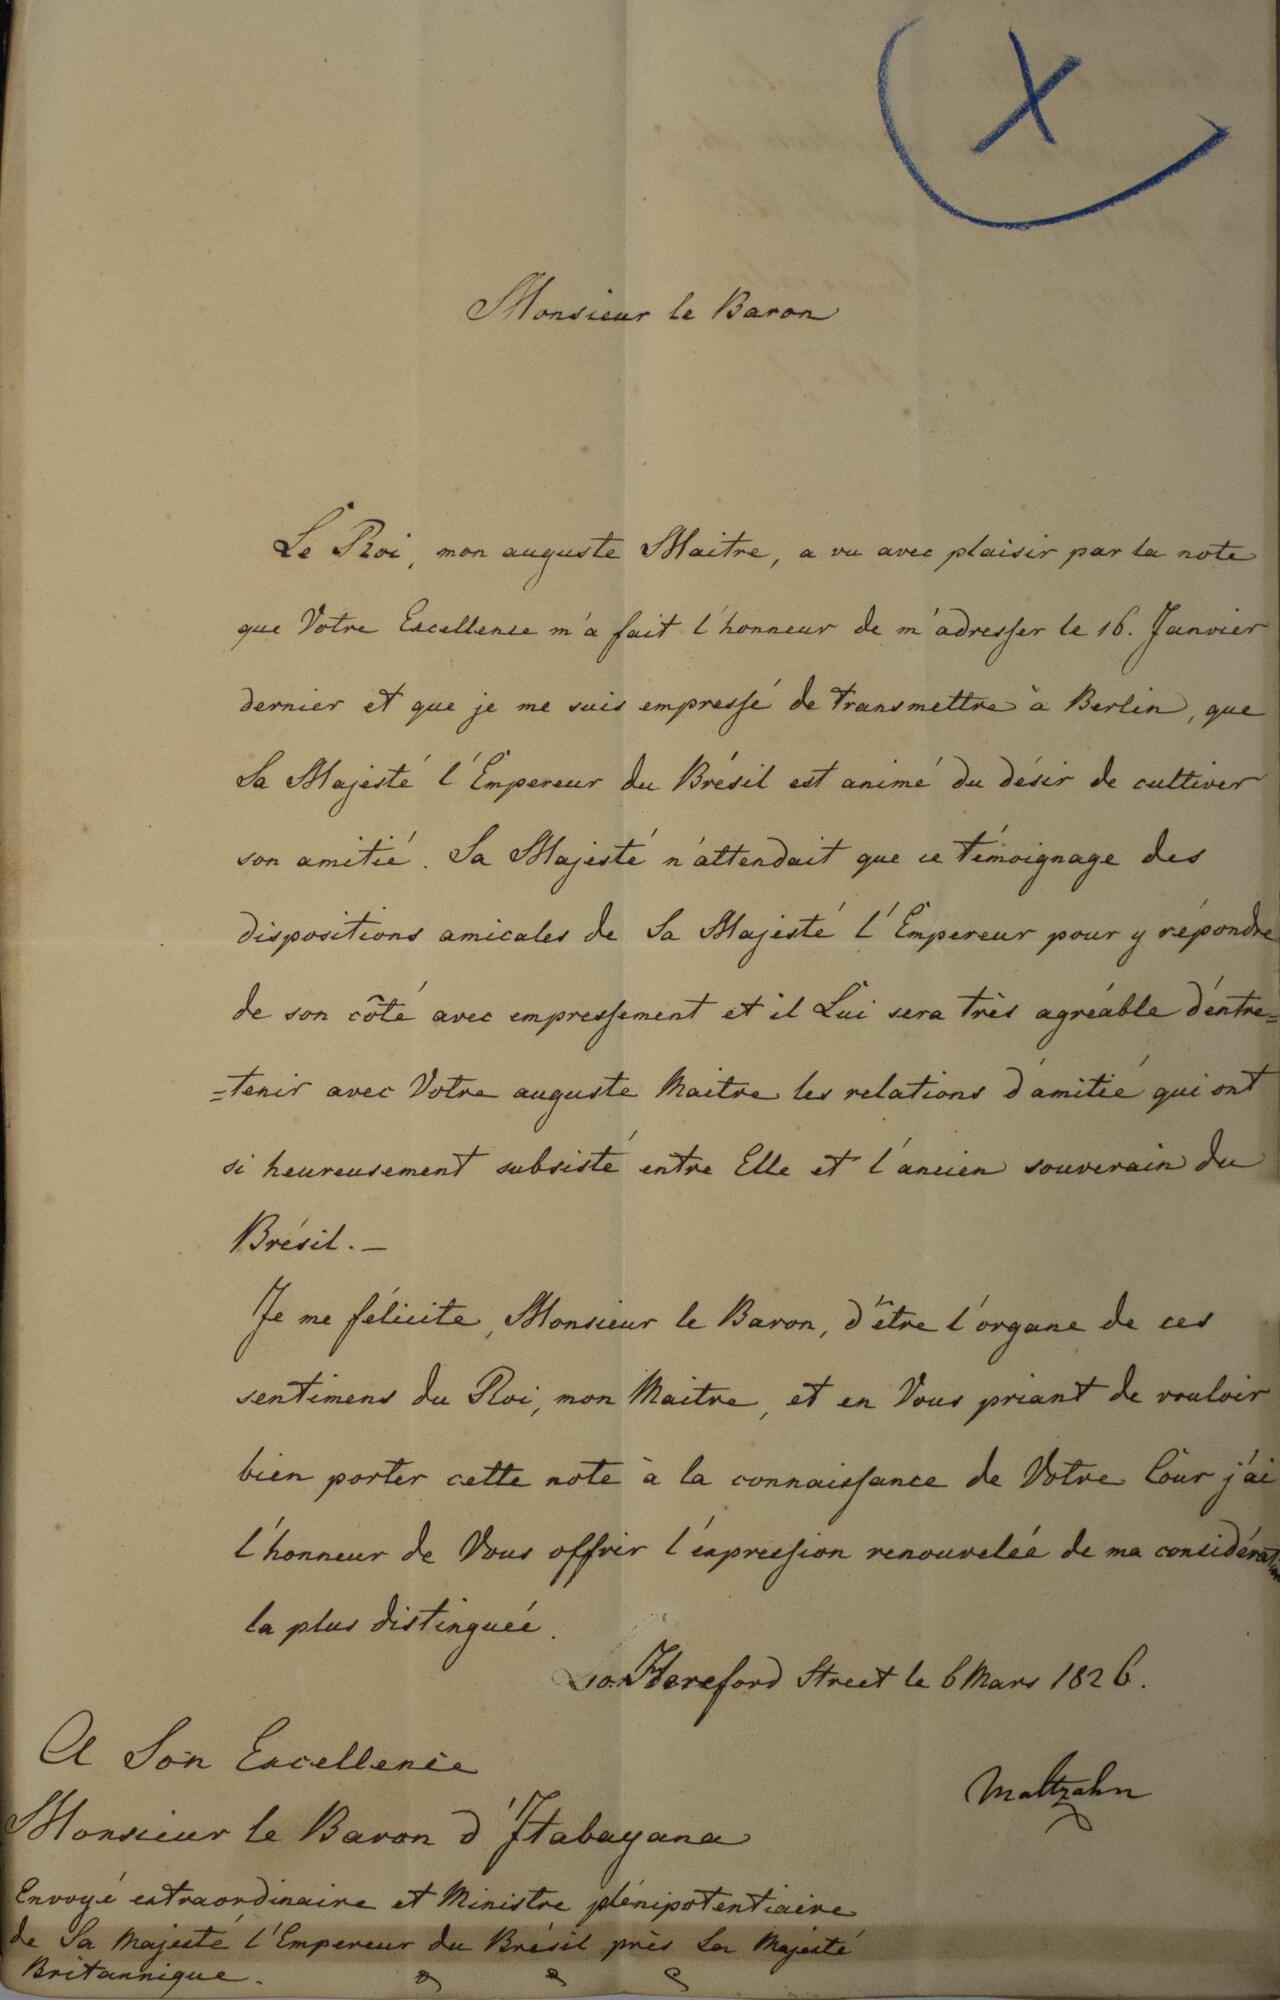 X
Monsieur le Baron
Le Roi, mon auguste Maitre, a vu avec plaisir par la note
que Votre Excellence m'a fait l'honneur de m'adresser le 16. Janvier
dernier et que je me suis empressé de transmettre à Berlin, que
Sa Majesté l'Empereur du Brésil est animé du désir de cultiver
son amitié. Sa Majesté n'attendait que ce témoignage des
dispositions amicales de Sa Majesté l'Empereur pour y répondre
de son côté avec empressement et il Lui sera très agréable d'entre=
=tenir avec Votre auguste Maitre les relations d'amitié qui ont
si heureusement subsisté entre Elle et l'ancien souverain du
Brésil. —
Je me félicite, Monsieur le Baron, d'être l'organe de ces
sentimens du Roi, mon Maitre, et en Vous priant de vouloir
bien porter cette note à la connaissance de Votre Cour j'ai
l'honneur de Vous offrir l'expression renouvelée de ma considération
la plus distinguée.
Hereford Street le 6 Mars 1826.
Maltzahn
A Son Excellence
Monsieur le Baron d'Itabayana
Envoyé extraordinaire et Ministre plénipotentiaire
de Sa Majesté l'Empereur du Brésil près Sa Majesté
Britannique.